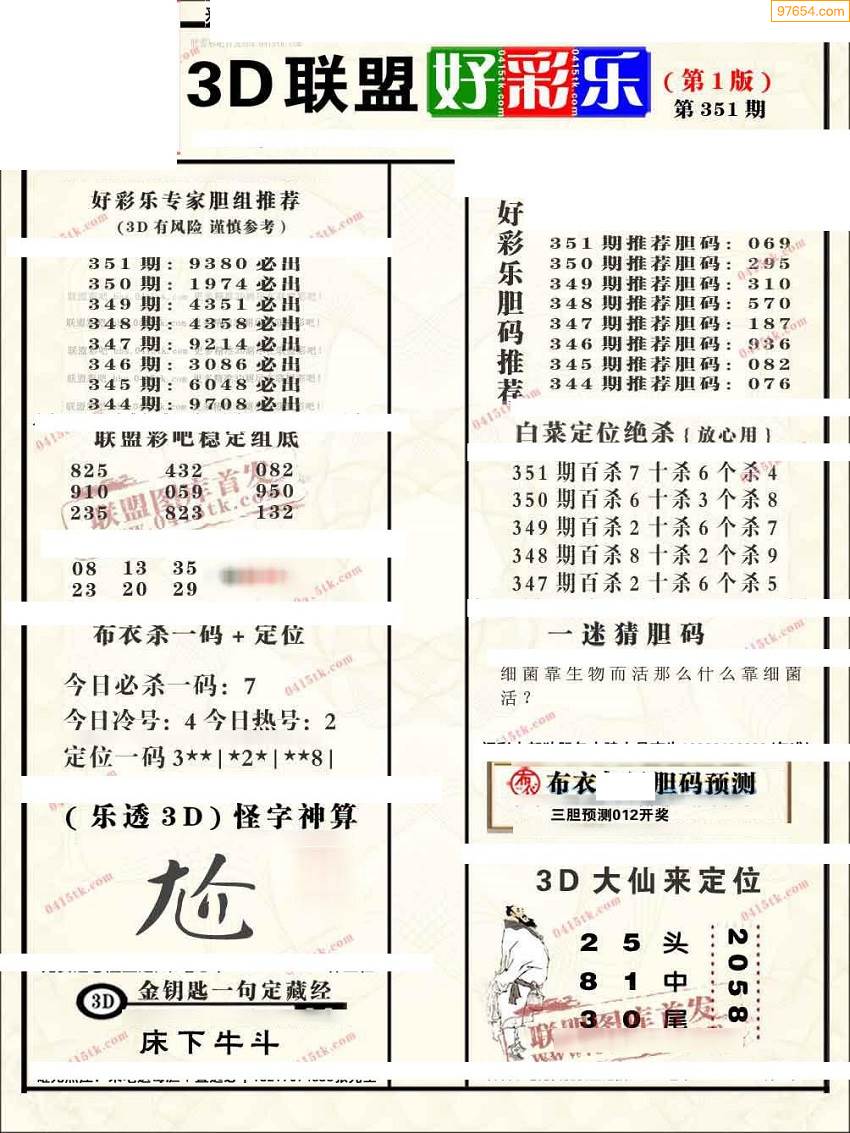 97654.com
3D联盟好彩乐
(第1版)
第351期
好彩乐专家胆组推荐
(3D有风险 谨慎参考)
351期: 9380必出
350期: 1974必出
349期: 4351必出
348期: 4358必出
347期: 9214必出
346期: 3086必出
345期: 6048必出
344期: 9708必出
联盟彩吧稳定组底
825 432 082
910 059 950
235 823 132
08 13 35
23 20 29
布衣杀一码+定位
今日必杀一码: 7
今日冷号: 4 今日热号: 2
定位一码3**|*2*|**8|
(乐透3D)怪字神算
尬
3D 金钥匙一句定藏经
床下牛斗
好彩乐胆码推荐
351期推荐胆码: 069
350期推荐胆码: 295
349期推荐胆码: 310
348期推荐胆码: 570
347期推荐胆码: 187
346期推荐胆码: 936
345期推荐胆码: 082
344期推荐胆码: 076
白菜定位绝杀{放心用}
351期百杀7十杀6个杀4
350期百杀6十杀3个杀8
349期百杀2十杀6个杀7
348期百杀8十杀2个杀9
347期百杀2十杀6个杀5
一迷猜胆码
细菌靠生物而活那么什么靠细菌
活?
布衣 胆码预测
三胆预测012开奖
3D大仙来定位
2 5 头
8 1 中
3 0 尾
2058
联盟图库首发
www.0415tk.com
0415tk.com